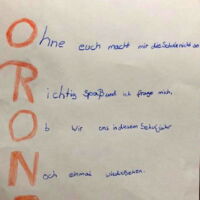 Ohne euch macht mir die Schule nicht so
Richtig Spaß und ich frage mich,
Ob wir uns in diesem Schuljahr
Noch einmal wiedersehen.